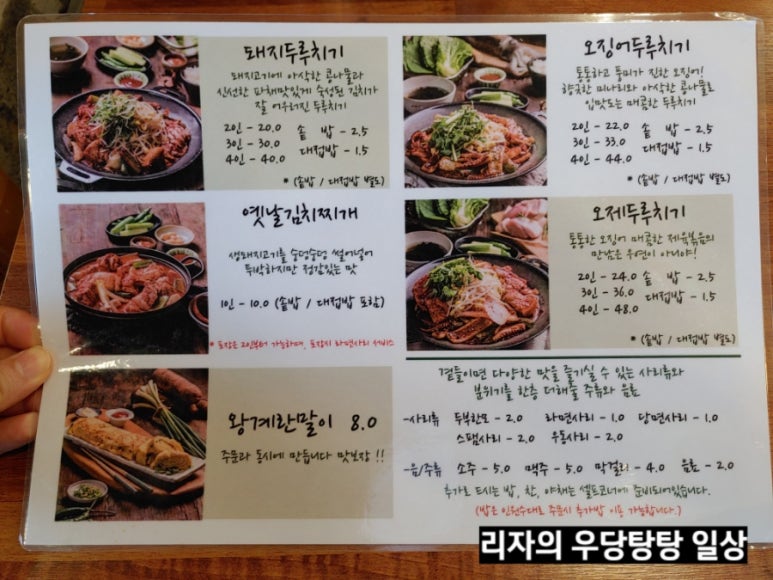 돼지두루치기
돼지고기에 아삭한 콩나물과
신선한 파채맛있게 숙성된 김치가
잘 어우러진 두루치기
2인 - 20.0 솥 밥 - 2.5
3인 - 30.0 대접밥 - 1.5
4인 - 40.0
* (솥밥 / 대접밥 별도)
옛날김치찌개
생돼지고기를 숭덩숭덩 썰어넣어
투박하지만 정감있는 맛
1인 - 10.0 (솥밥 / 대접밥 포함)
* 포장은 2인부터 가능하며, 포장시 라면사리 서비스
왕계란말이 8.0
주문과 동시에 만듭니다 맛보장 !!
오징어두루치기
통통하고 풍미가 진한 오징어!
향긋한 미나리와 아삭한 콩나물로
입맛도는 매콤한 두루치기
2인 - 22.0 솥 밥 - 2.5
3인 - 33.0 대접밥 - 1.5
4인 - 44.0
* (솥밥 / 대접밥 별도)
오제두루치기
통통한 오징어 매콤한 제육볶음의
만남은 우연이 아니야!
2인 - 24.0 솥 밥 - 2.5
3인 - 36.0 대접밥 - 1.5
4인 - 48.0
* (솥밥 / 대접밥 별도)
곁들이면 다양한 맛을 즐기실 수 있는 사리류와
분위기를 한층 더해줄 주류와 음료
-사리류 두부한모 - 2.0 라면사리 - 1.0 당면사리 - 1.0
스팸사리 - 2.0 우동사리 - 2.0
-음/주류 소주 - 5.0 맥주 - 5.0 막걸리 - 4.0 음료 - 2.0
추가로 드시는 밥, 찬, 야채는 셀프코너에 준비되어있습니다.
(밥은 인원수대로 주문시 추가밥 이용 가능합니다.)
리자의 우당탕탕 일상